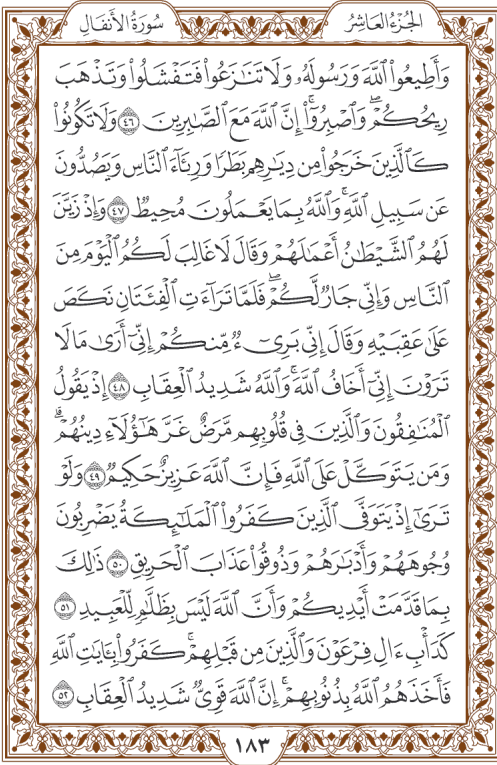 الجُزْءُ العَاشِرُ سُورَةُ الأَنفَالِ
وَأَطِيعُوا۟ ٱللَّهَ وَرَسُولَهُۥ وَلَا تَنَـٰزَعُوا۟ فَتَفْشَلُوا۟ وَتَذْهَبَ
رِيحُكُمْ ۖ وَٱصْبِرُوٓا۟ ۚ إِنَّ ٱللَّهَ مَعَ ٱلصَّـٰبِرِينَ ٤٦ وَلَا تَكُونُوا۟
كَٱلَّذِينَ خَرَجُوا۟ مِن دِيَـٰرِهِم بَطَرًا وَرِئَآءَ ٱلنَّاسِ وَيَصُدُّونَ
عَن سَبِيلِ ٱللَّهِ ۚ وَٱللَّهُ بِمَا يَعْمَلُونَ مُحِيطٌ ٤٧ وَإِذْ زَيَّنَ
لَهُمُ ٱلشَّيْطَـٰنُ أَعْمَـٰلَهُمْ وَقَالَ لَا غَالِبَ لَكُمُ ٱلْيَوْمَ مِنَ
ٱلنَّاسِ وَإِنِّى جَارٌ لَّكُمْ ۖ فَلَمَّا تَرَآءَتِ ٱلْفِئَتَانِ نَكَصَ
عَلَىٰ عَقِبَيْهِ وَقَالَ إِنِّى بَرِىٓءٌ مِّنكُمْ إِنِّىٓ أَرَىٰ مَا لَا
تَرَوْنَ إِنِّىٓ أَخَافُ ٱللَّهَ ۚ وَٱللَّهُ شَدِيدُ ٱلْعِقَابِ ٤٨ إِذْ يَقُولُ
ٱلْمُنَـٰفِقُونَ وَٱلَّذِينَ فِى قُلُوبِهِم مَّرَضٌ غَرَّ هَـٰٓؤُلَآءِ دِينُهُمْ ۗ
وَمَن يَتَوَكَّلْ عَلَى ٱللَّهِ فَإِنَّ ٱللَّهَ عَزِيزٌ حَكِيمٌ ٤٩ وَلَوْ
تَرَىٰٓ إِذْ يَتَوَفَّى ٱلَّذِينَ كَفَرُوا۟ ۙ ٱلْمَلَـٰٓئِكَةُ يَضْرِبُونَ
وُجُوهَهُمْ وَأَدْبَـٰرَهُمْ وَذُوقُوا۟ عَذَابَ ٱلْحَرِيقِ ٥٠ ذَٰلِكَ
بِمَا قَدَّمَتْ أَيْدِيكُمْ وَأَنَّ ٱللَّهَ لَيْسَ بِظَلَّـٰمٍ لِّلْعَبِيدِ ٥١
كَدَأْبِ ءَالِ فِرْعَوْنَ وَٱلَّذِينَ مِن قَبْلِهِمْ ۚ كَفَرُوا۟ بِـَٔايَـٰتِ ٱللَّهِ
فَأَخَذَهُمُ ٱللَّهُ بِذُنُوبِهِمْ ۗ إِنَّ ٱللَّهَ قَوِىٌّ شَدِيدُ ٱلْعِقَابِ ٥٢
١٨٣